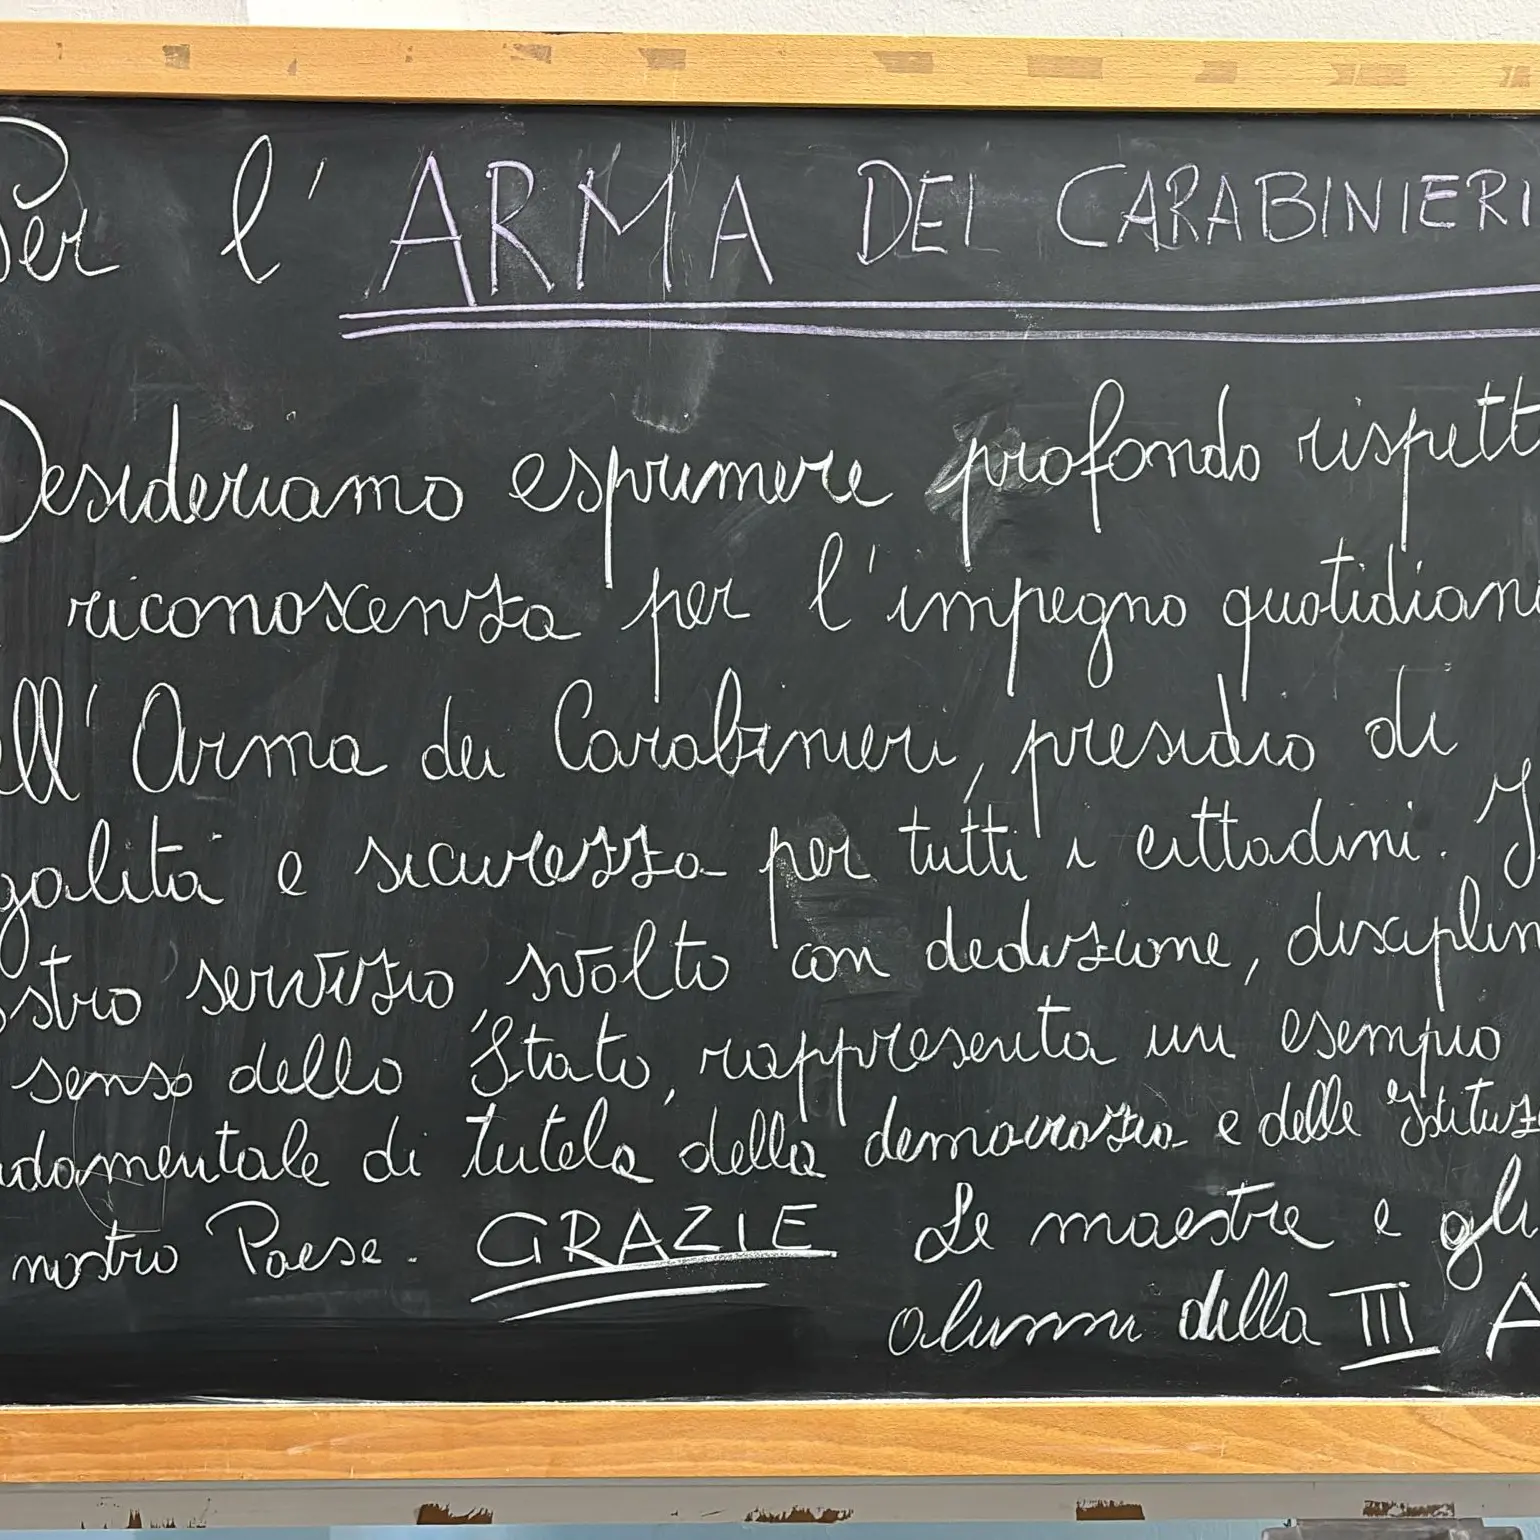 Per l' ARMA DEI CARABINIERI
Desideriamo esprimere profondo rispett
riconoscenza per l'impegno quotidian
ell'Arma dei Carabinieri, presidio di
galità e sicurezza per tutti i cittadini. I
stro servizio, svolto con dedizione, disciplin
senso dello Stato, rappresenta un esempio
damentale di tutela della democrazia e delle Istituz
nostro Paese. GRAZIE Le maestre e gli
alunni della III A